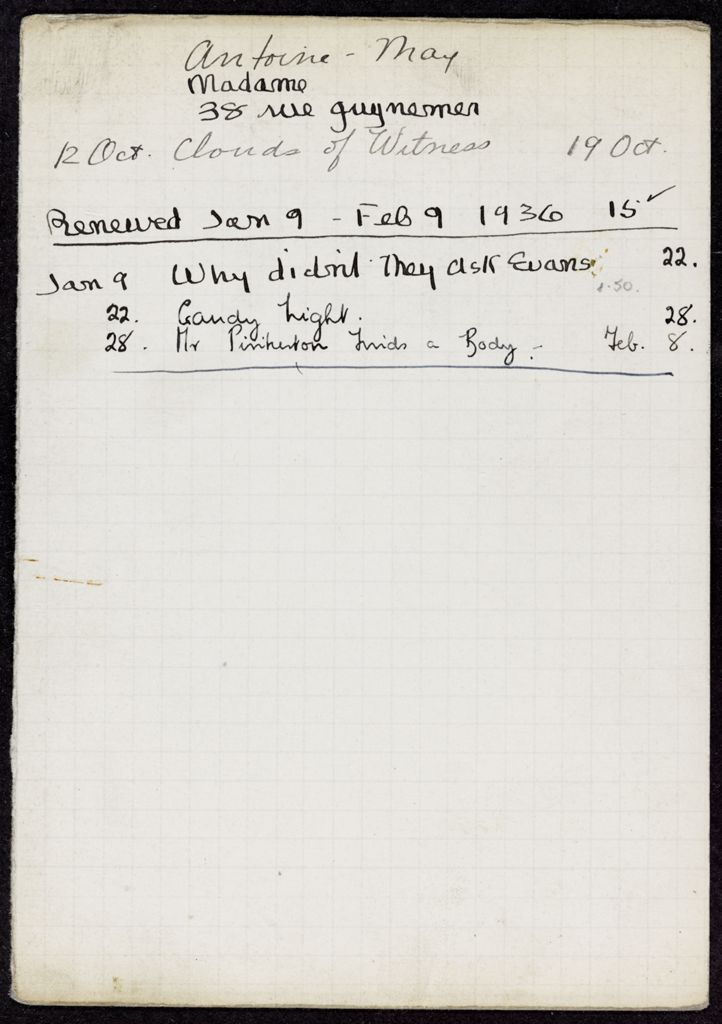 Antoine - May
Madame
38 rue guynemer
12 Oct. Clouds of Witness 19 Oct.
Renewed Jan 9 - Feb 9 1936 15 ✓
Jan 9 Why didn't They ask Evans 22.
1.50.
22. Gaudy Night. 28.
28. Mr Pinkerton Finds a Body - Feb. 8.